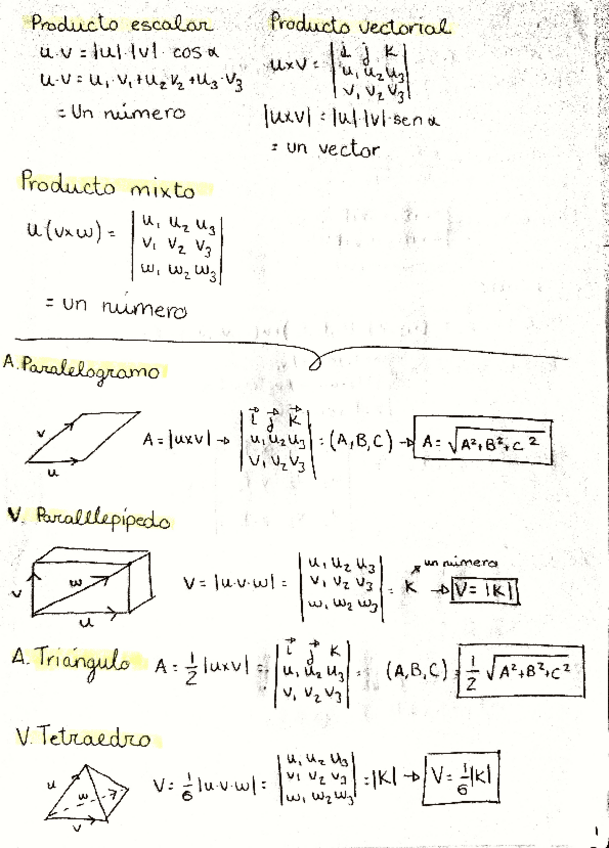 Producto escalar
u·v = |u|·|v|·cos α
u·v = u₁·v₁+u₂v₂+u₃·v₃
= Un número
Producto vectorial
uxv = |i j k|
|u₁ u₂ u₃|
|v₁ v₂ v₃|
|uxv| = |u|·|v|·sen α
= un vector
Producto mixto
u(vxw) = |u₁ u₂ u₃|
|v₁ v₂ v₃|
|w₁ w₂ w₃|
= un número
A. Paralelogramo
v
u
A = |uxv| → |i j k|
|u₁ u₂ u₃| = (A,B,C) → A = √A²+B²+C²
|v₁ v₂ v₃|
V. Paralelepípedo
v
w
u
V = |u·v·w| = |u₁ u₂ u₃|
|v₁ v₂ v₃| = K → V = |K|
|w₁ w₂ w₃|
un número
A. Triángulo A = 1/2 |uxv| = |i j k|
|u₁ u₂ u₃| = (A,B,C) = 1/2 √A²+B²+C²
|v₁ v₂ v₃|
V. Tetraedro
u
w
v
V = 1/6 |u·v·w| = |u₁ u₂ u₃|
|v₁ v₂ v₃| = |K| → V = 1/6 |K|
|w₁ w₂ w₃|
1